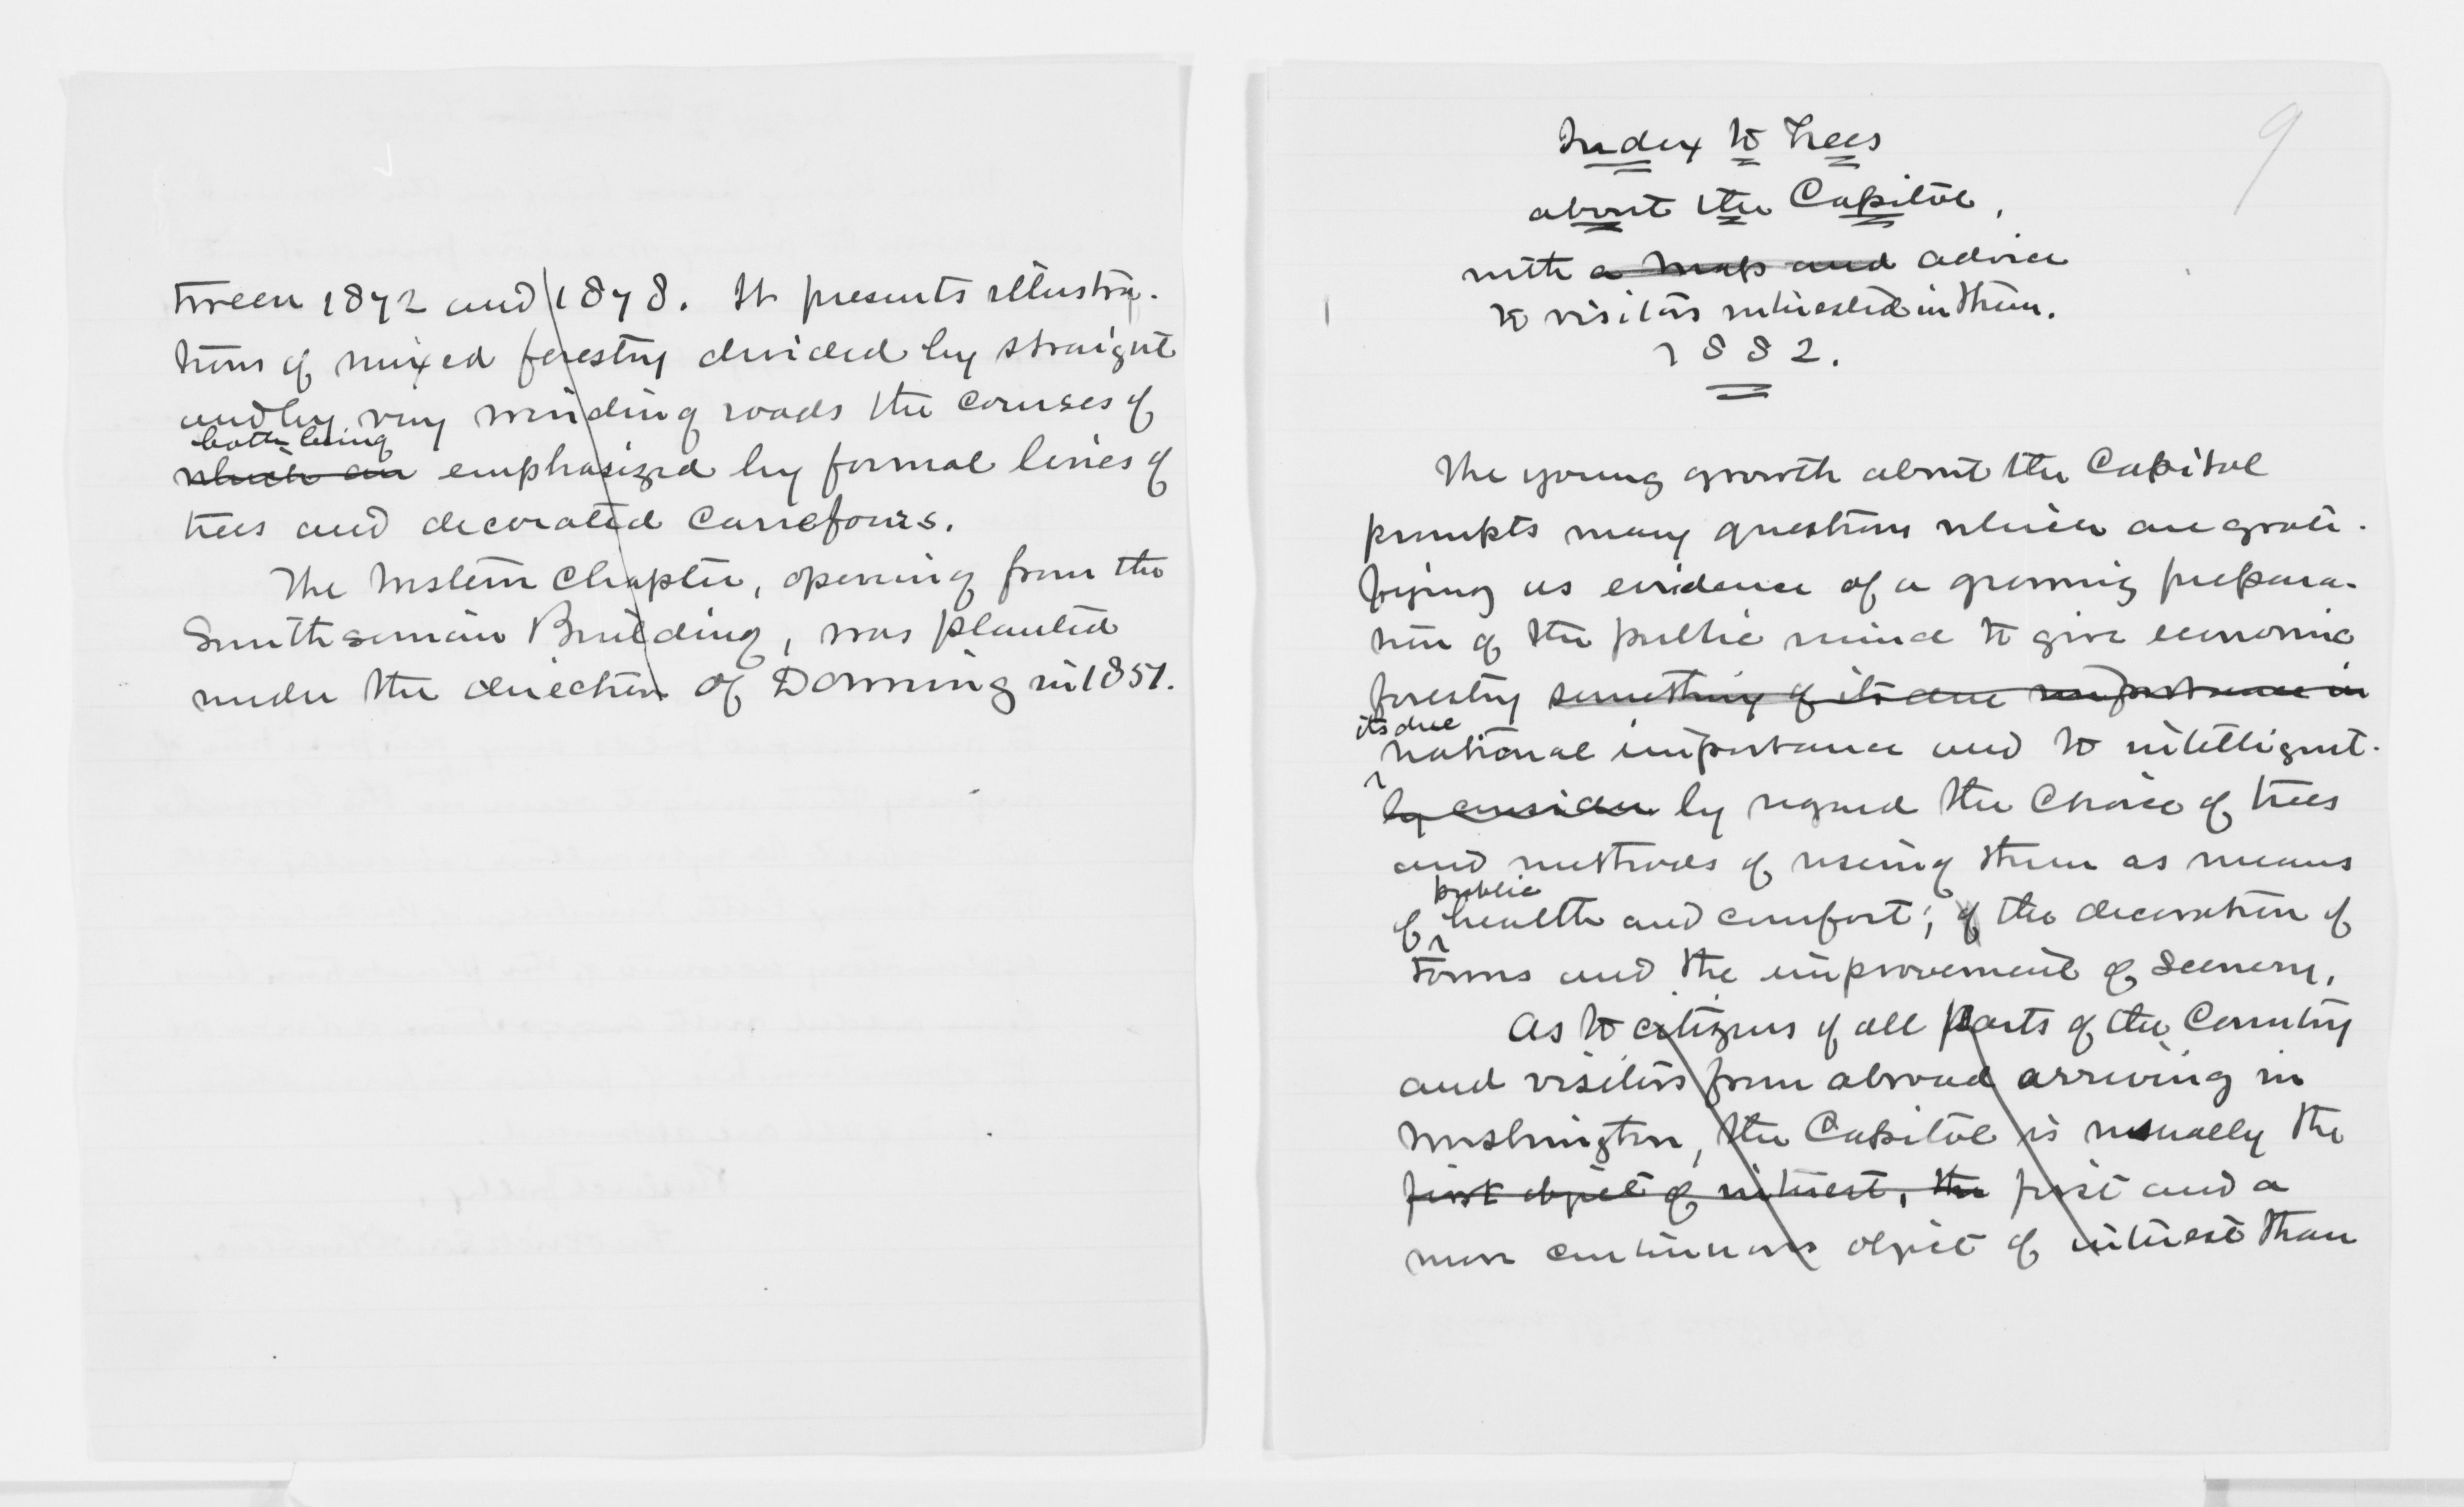 tween 1872 and 1878. It presents illustra-
tions of mixed forestry divided by straight
and by very winding roads the courses of
both being
which are emphasized by formal lines of
trees and decorated carrefours.
The Western Chapter, opening from the
Smithsonian Building, was planted
under the direction of Downing in 1851.
9
Index to Trees
about the Capitol,
with a map and advice
to visitors interested in them.
1882.
The young growth about the Capitol
prompts many questions which are grati-
fying as evidence of a growing prepara-
tion of the public mind to give economic
forestry something of its due importance in
its due
national importance and to intelligent-
ly consider ly regard the choice of trees
and methods of using them as means
public
of health and comfort; of the decoration of
towns and the improvement of scenery.
As to citizens of all parts of the Country
and visitors from abroad arriving in
Washington, the Capitol is usually the
first object of interest, the first and a
more continuous object of interest than